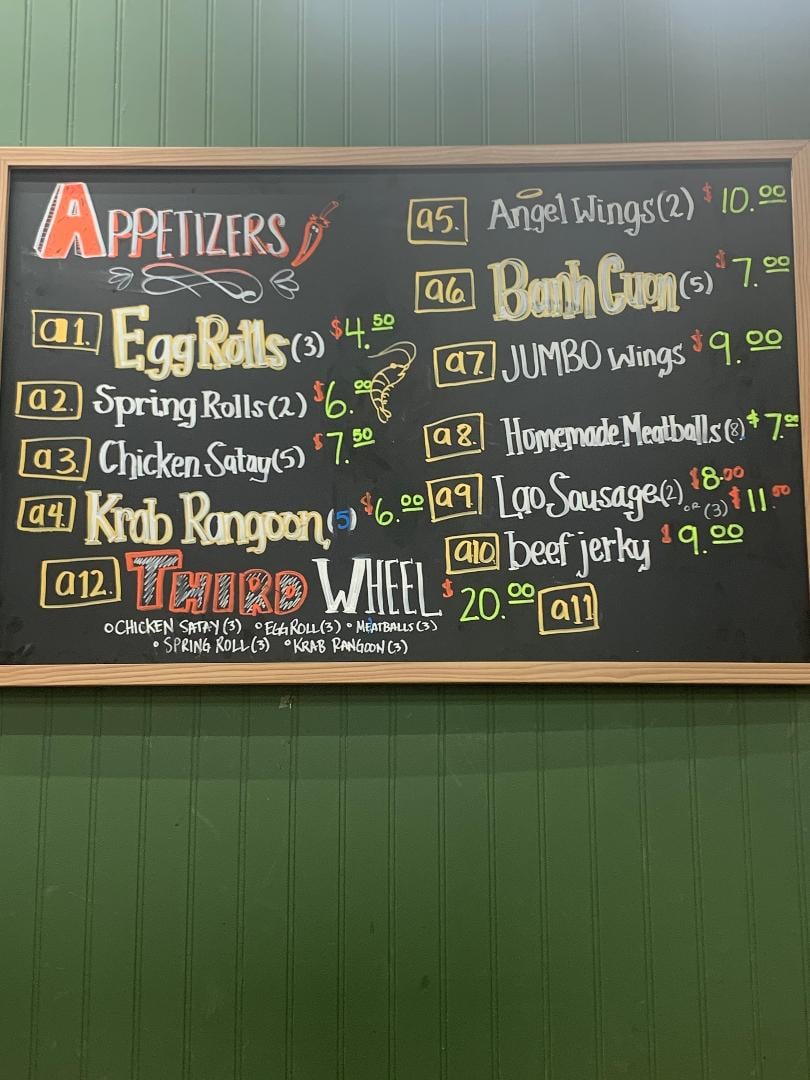 APPETIZERS
a1. Egg Rolls (3) $4.50
a2. Spring Rolls (2) $6.00
a3. Chicken Satay (5) $7.50
a4. Krab Rangoon (5) $6.00
a5. Angel Wings (2) $10.00
a6. Banh Cuon (5) $7.00
a7. JUMBO Wings $9.00
a8. Homemade Meatballs (8) $7.00
a9. Lao Sausage (2) $8.00
OR (3) $11.50
a10. beef jerky $9.00
a12. THIRD WHEEL $20.00
a11
• CHICKEN SATAY (3) • EGG ROLL (3) • MEATBALLS (3)
• SPRING ROLL (3) • KRAB RANGOON (3)